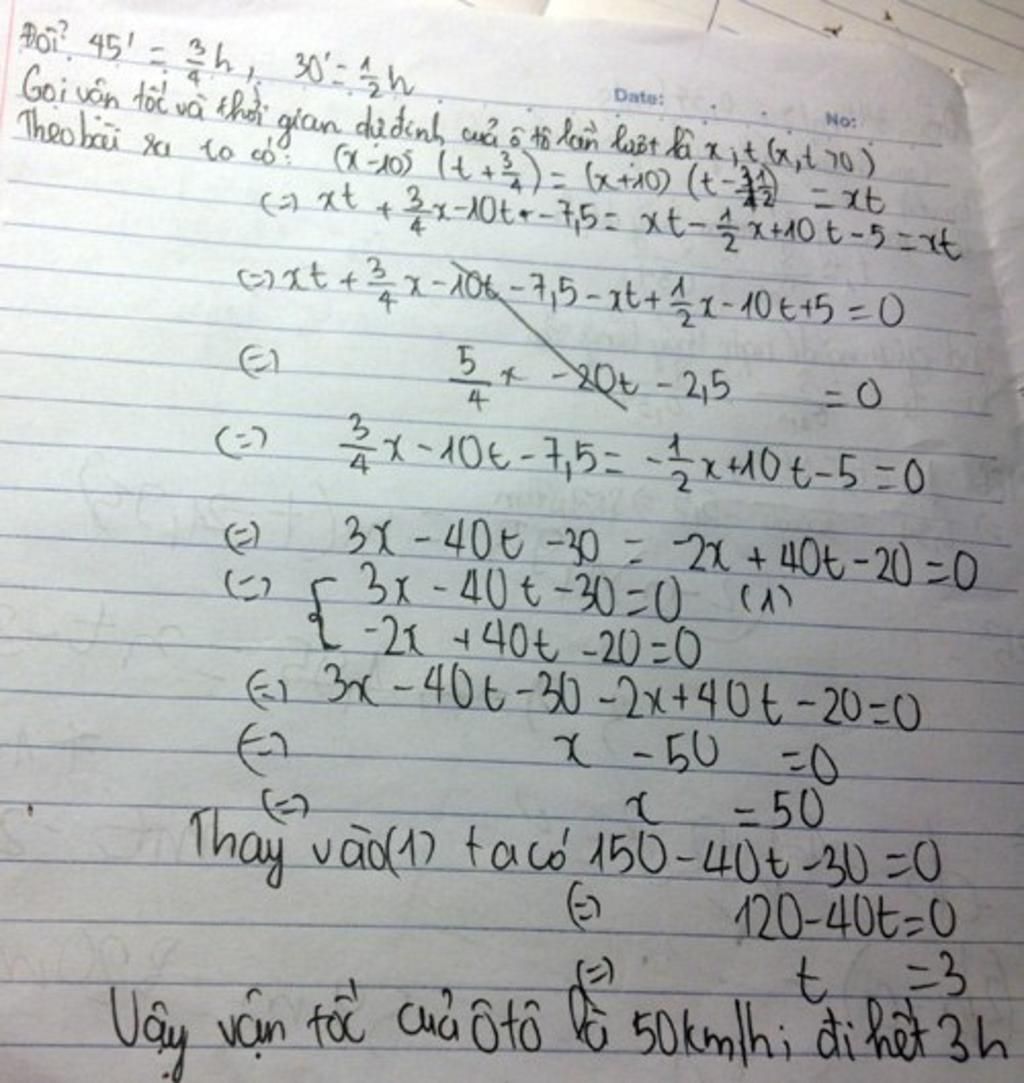 Đổi 45' = 3/4 h, 30' = 1/2 h
Date: No:
Gọi vận tốc và thời gian dự định của ô tô lần lượt là x, t (x, t > 0)
Theo bài ra ta có: (x-10) (t + 3/4) = (x+10) (t - 1/2) = xt
(=) xt + 3/4 x - 10t - 7,5 = xt - 1/2 x + 10t - 5 = xt
(=) xt + 3/4 x - 10t - 7,5 - xt + 1/2 x - 10t + 5 = 0
(=) 5/4 x - 20t - 2,5 = 0
(=) 3/4 x - 10t - 7,5 = -1/2 x + 10t - 5 = 0
(=) 3x - 40t - 30 = -2x + 40t - 20 = 0
(=) { 3x - 40t - 30 = 0 (1)
-2x + 40t - 20 = 0
(=) 3x - 40t - 30 - 2x + 40t - 20 = 0
(=) x - 50 = 0
(=) x = 50
Thay vào (1) ta có 150 - 40t - 30 = 0
(=) 120 - 40t = 0
(=) t = 3
Vậy vận tốc của ôtô là 50km/h; đi hết 3h